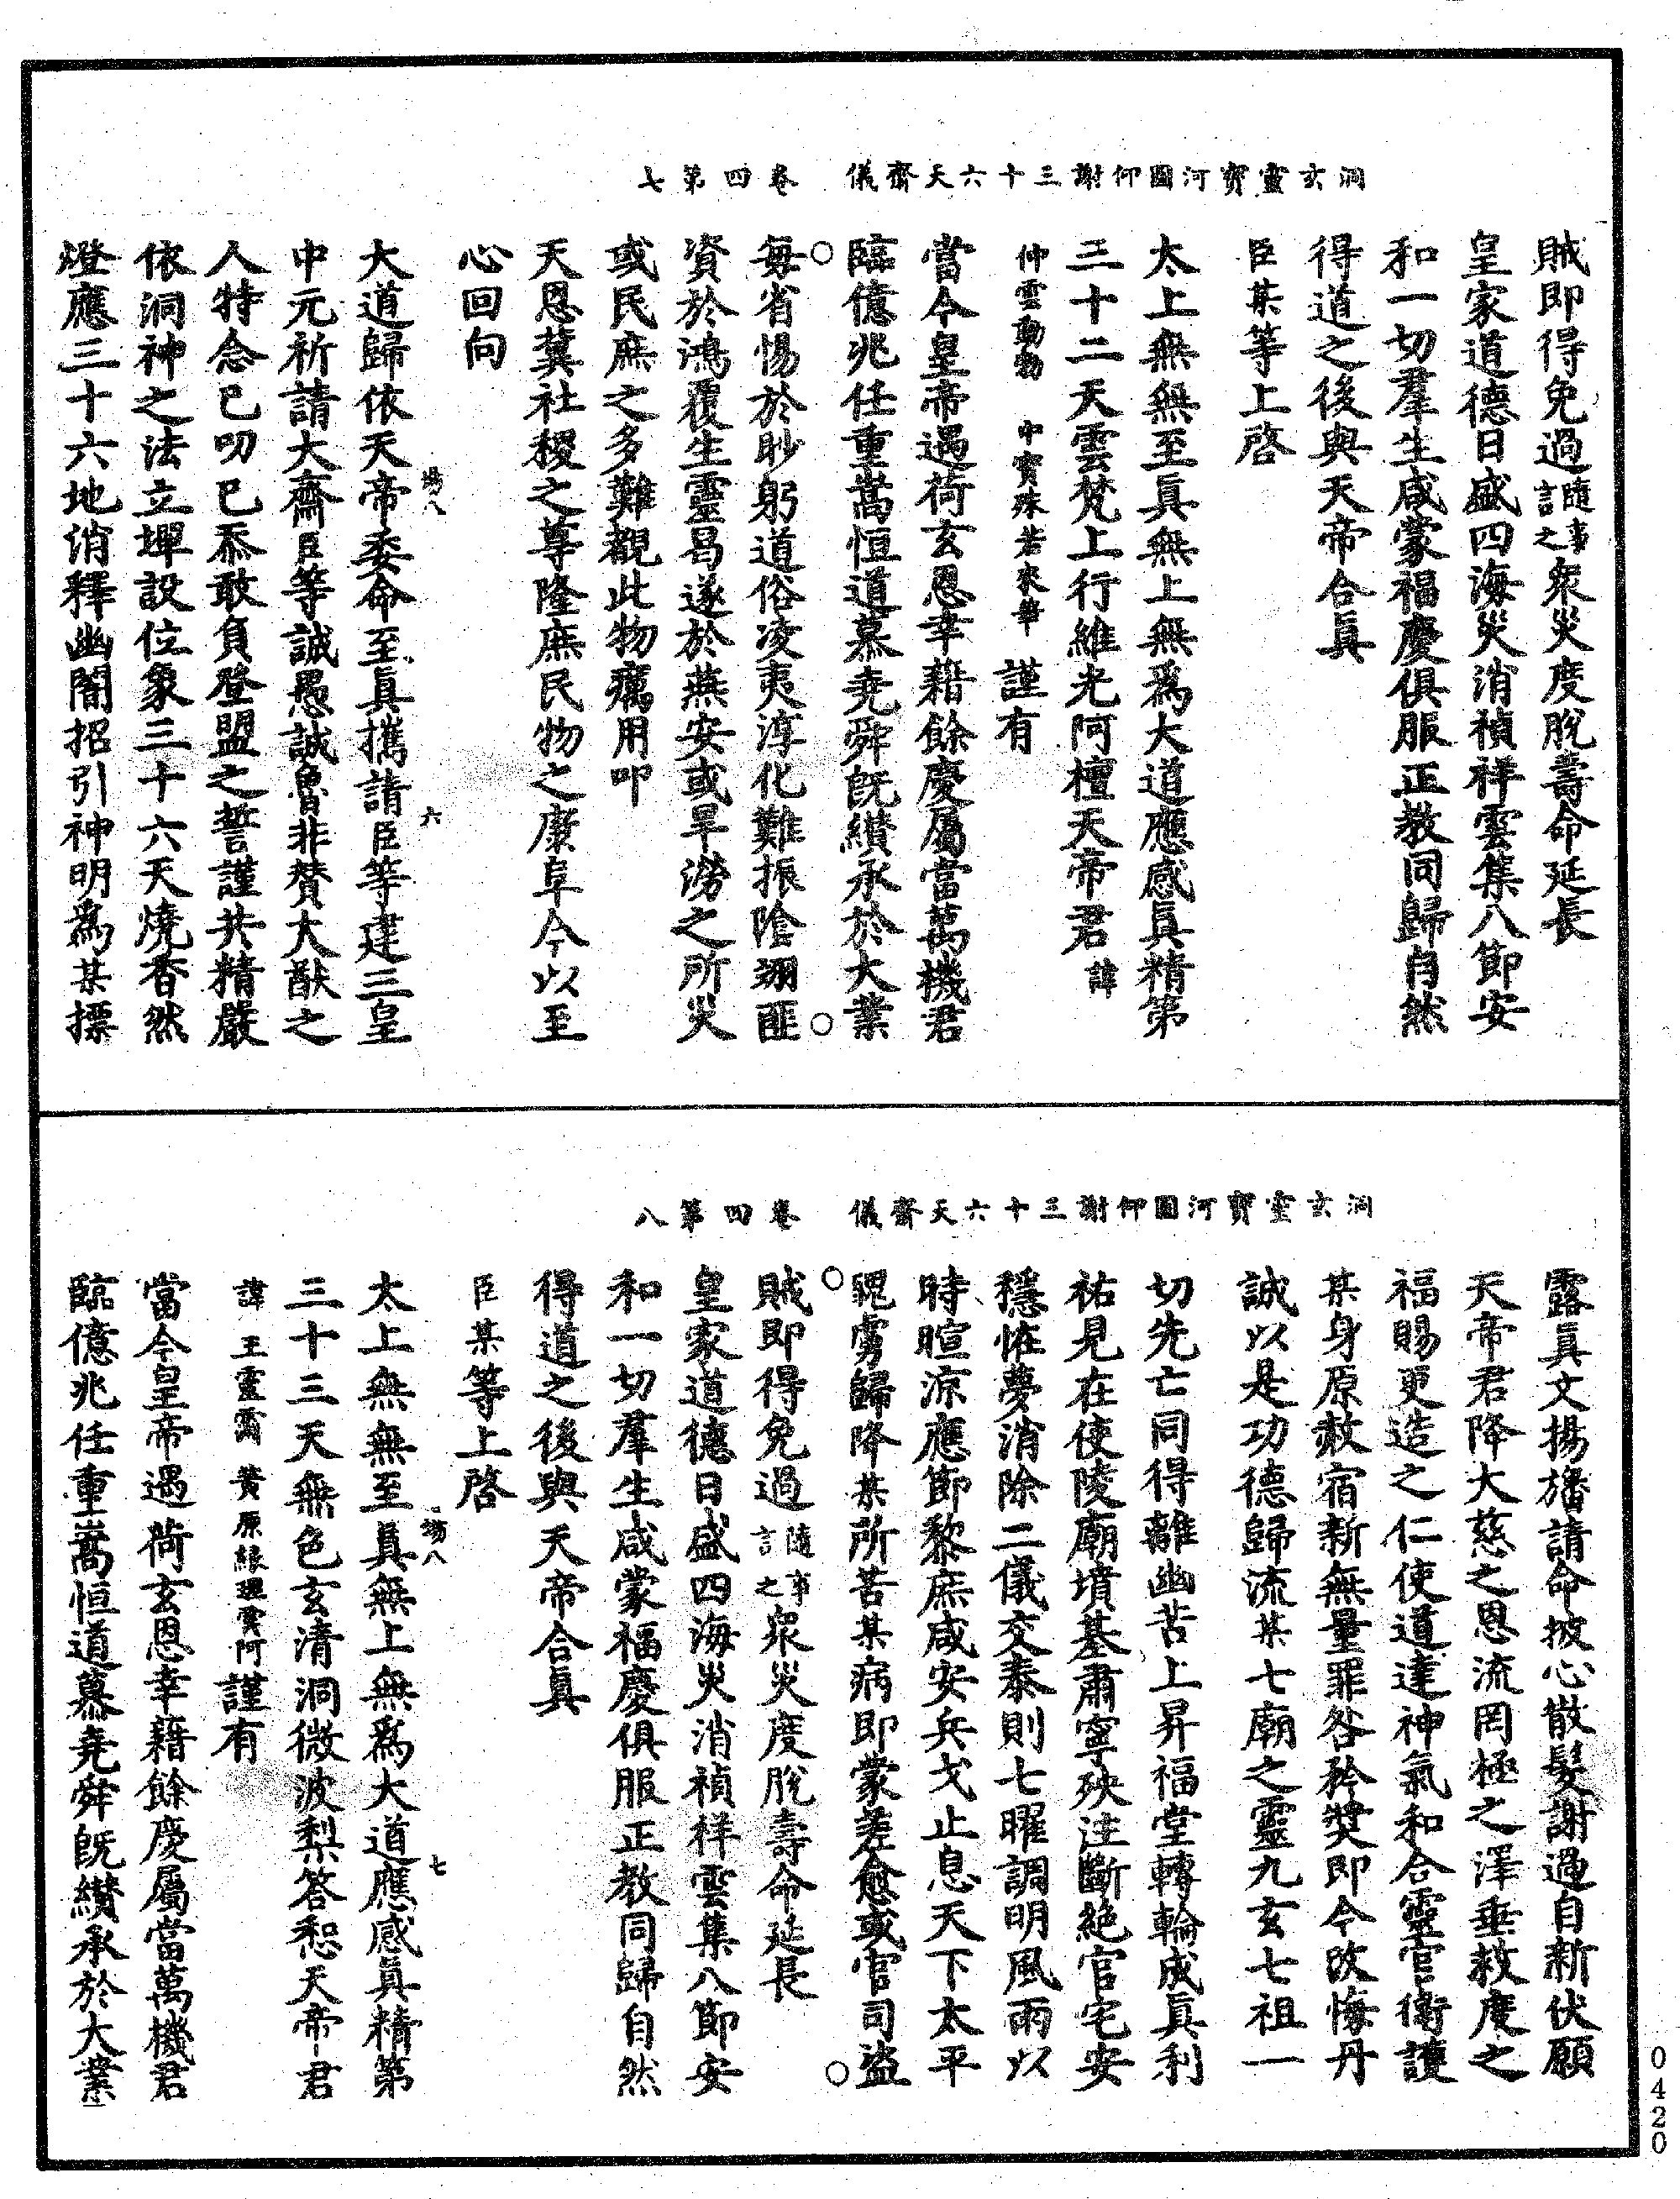 洞玄靈寶河圖仰謝三十六天齋儀 卷四第七
賊即得免過隨事言之眾災度脫壽命延長
皇家道德日盛四海災消禎祥雲集八節安
和一切羣生咸蒙福慶俱服正教同歸自然
得道之後與天帝合眞
臣某等上啓
太上無無至眞無上無爲大道應感眞精第
三十二天雲梵上行維光阿檀天帝君諱
仲雲動物 中寶殊若來華 謹有
當今皇帝遇荷玄恩幸藉餘慶屬當萬機君
臨億兆任重嵩恒道慕堯舜旣纘承於大業
每省惕於眇躬道俗凌夷淳化難振陰翊匪
資於鴻覆生靈曷遂於燕安或旱澇之所災
或民庶之多難觀此物癘用叩
天恩冀社稷之尊隆庶民物之康阜今以至
心回向
大道歸依天帝委命至眞攜請臣等建三皇
中元祈請大齋臣等誠愚誠魯非贊大猷之
人特念已叨已忝敢負登盟之誓謹共精嚴
依洞神之法立墠設位象三十六天燒香然
燈應三十六地消釋幽闇招引神明爲某摽
傷八
六
洞玄靈寶河圖仰謝三十六天齋儀 卷四第八
露眞文揚旛請命披心散髮謝過自新伏願
天帝君降大慈之恩流罔極之澤垂救度之
福賜更造之仁使道達神氣和合靈官衛護
某身原赦宿新無量罪咎矜獎即今改悔丹
誠以是功德歸流某七廟之靈九玄七祖一
切先亡同得離幽苦上昇福堂轉輪成眞利
祐見在使陵廟墳墓肅寧殃注斷絕官宅安
穩恠夢消除二儀交泰則七曜調明風雨以
時暄涼應節黎庶咸安兵戈止息天下太平
醜虜歸降某所苦某病即蒙差愈或官司盜
賊即得免過隨事言之眾災度脫壽命延長
皇家道德日盛四海災消禎祥雲集八節安
和一切羣生咸蒙福慶俱服正教同歸自然
得道之後與天帝合眞
臣某等上啓
太上無無至眞無上無爲大道應感眞精第
三十三天無色玄清洞微波梨答惒天帝君
諱 王靈 黃原緣理雲阿謹有
當今皇帝遇荷玄恩幸藉餘慶屬當萬機君
臨億兆任重嵩恒道慕堯舜旣纘承於大業
傷八
七
0420